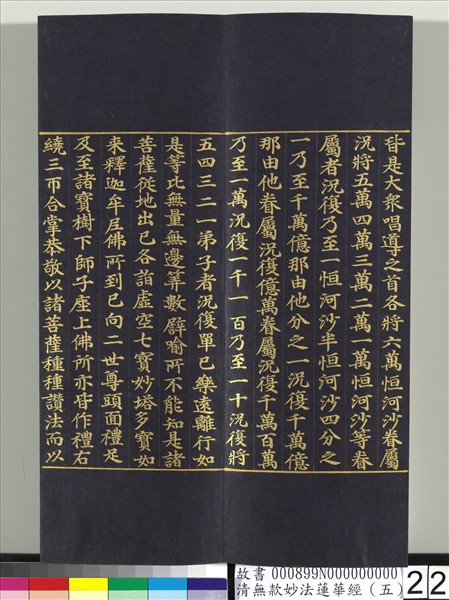 皆是大衆唱導之首各將六萬恒河沙眷屬
況將五萬四萬三萬二萬一萬恒河沙等眷
屬者況復乃至一恒河沙半恒河沙四分之
一乃至千萬億那由他分之一況復千萬億
那由他眷屬況復億萬眷屬況復千萬百萬
乃至一萬況復一千一百乃至一十況復將
五四三二一弟子者況復單已樂遠離行如
是等比無量無邊筭數譬喻所不能知是諸
菩薩從地出已各詣虛空七寶妙塔多寶如
來釋迦牟尼佛所到已向二世尊頭面禮足
及至諸寶樹下師子座上佛所亦皆作禮右
繞三帀合掌恭敬以諸菩薩種種讚法而以
故書 000899N000000000
清無款妙法蓮華經（五）
22